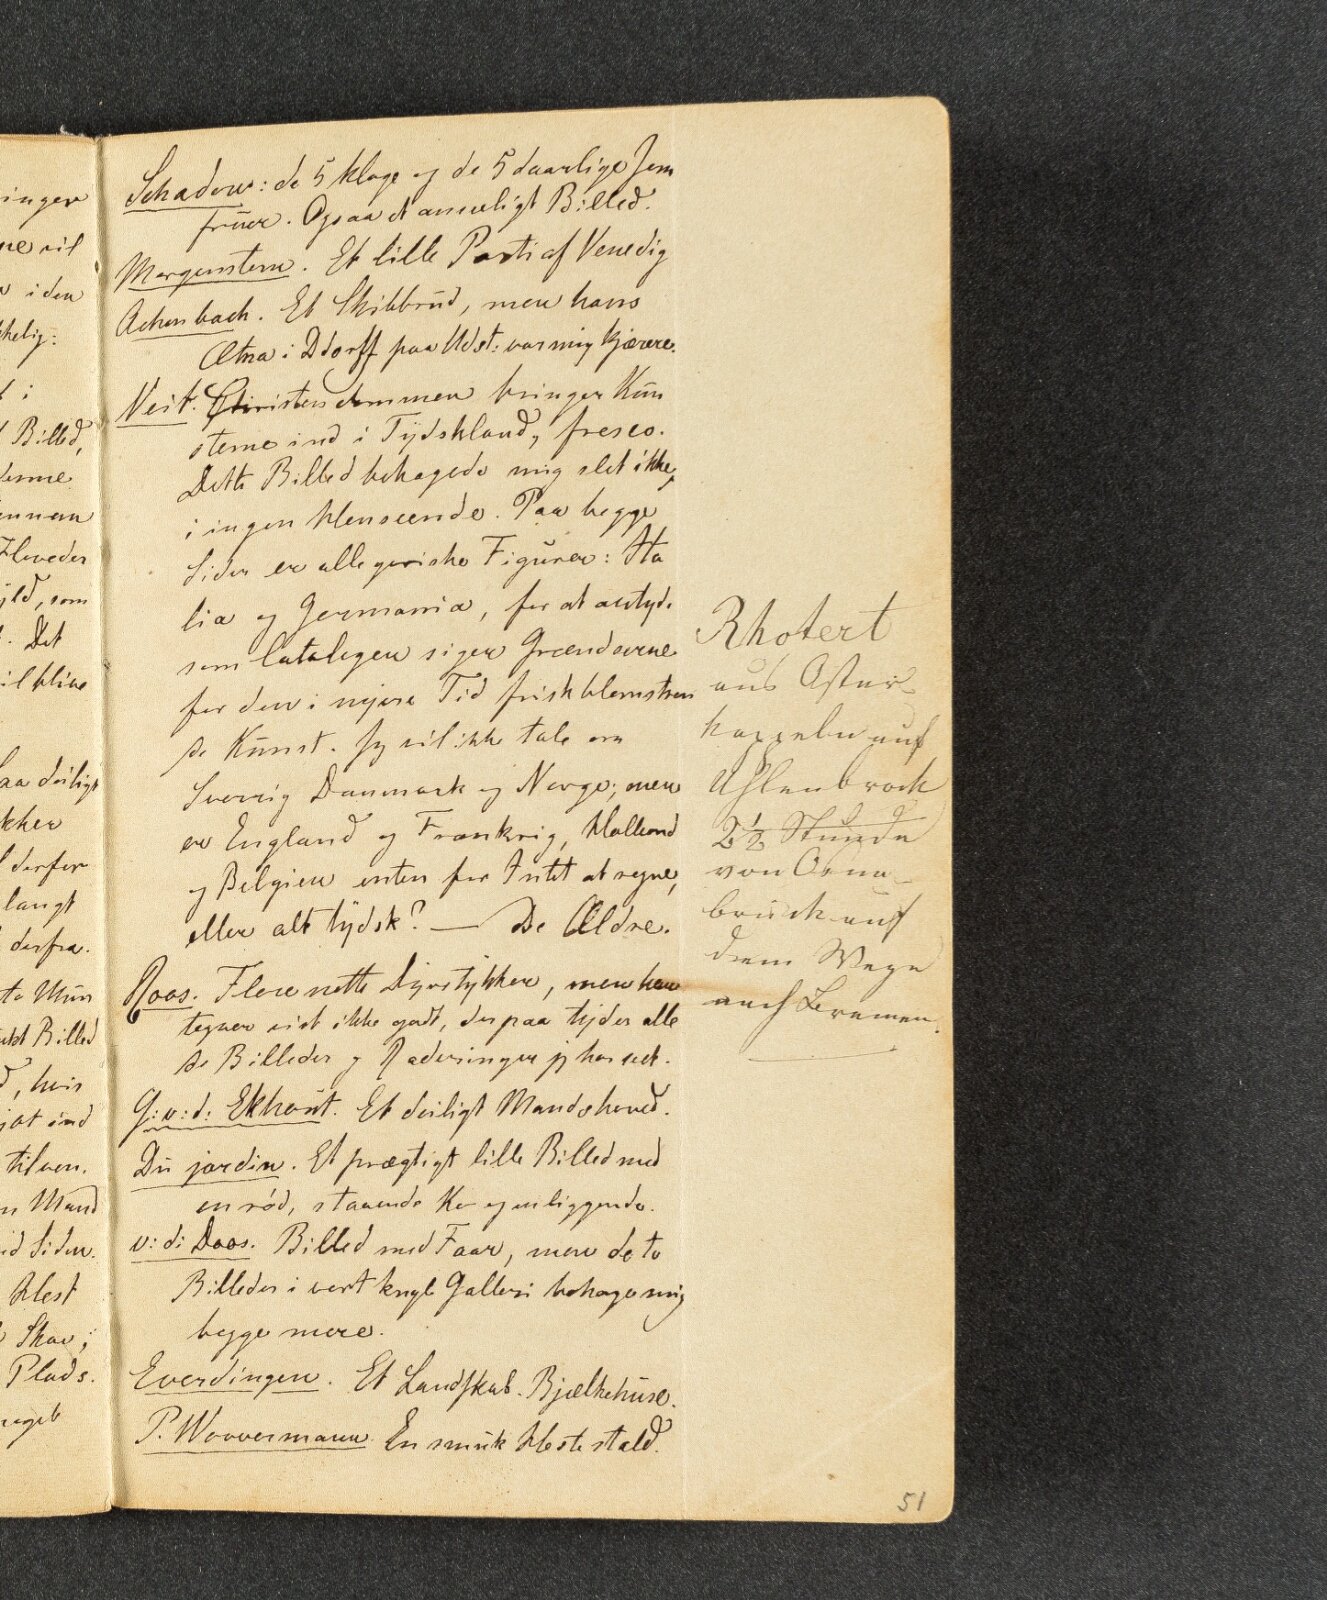 Schadow: de 5 kloge og de 5 daarlige Jom
fruer. Ogsaa et anseeligt Billed.
Morgenstern. Et lille Parti af Venedig
Achenbach. Et Skibbrud, men hans
Ætna i Ddorff paa Udst: var mig kjærere.
Veit. Christendommen bringer Kun
sterne ind i Tydskland, fresco.
Dette Billed behagede mig slet ikke,
i ingen Henseende. Paa begge
Sider er allegoriske Figurer: Ita
lia og Germania, for at antyde
som Catalogen siger Grændserne
for den i nyere Tid friskblomstren
de Kunst. Jeg vil ikke tale om
Sverrig Danmark og Norge; men
er England og Frankrig, Holland
og Belgien enten for Intet at regne,
eller alt tydsk? — De Ældre.
Roos. Flere nette Dyrstykker, men han
tegner vist ikke godt, der paa tyder alle
de Billeder og Raderinger jeg har seet.
G: v: d: Ekhout. Et deiligt Mandshoved.
Du jardin. Et prægtigt lille Billed med
en rød, staaende Ko og en liggende.
v: d: Does. Billed med Faar, men de to
Billeder i vort kngle Galleri behage mig
begge mere.
Everdingen. Et Landskab. Bjælkehuse.
P. Wouvermann. En smuk Hestestald.
Rhotert
aus Oster
kappeln auf
Uhlenbrock
2½ Stunde
von Osna-
bruck auf
dem Wege
nach Bremen.
51
ingen
ne vil
i den
kelig:
i
Billed,
denne
ennem
Hoveder
yld, som
Det
vil blive
saa deiligt
kker
derfor
langt
derfra.
to Mün
Billed
, hvis
ind
til ven.
n Mand
id Siden.
Hest
Skov;
Plads.
meget